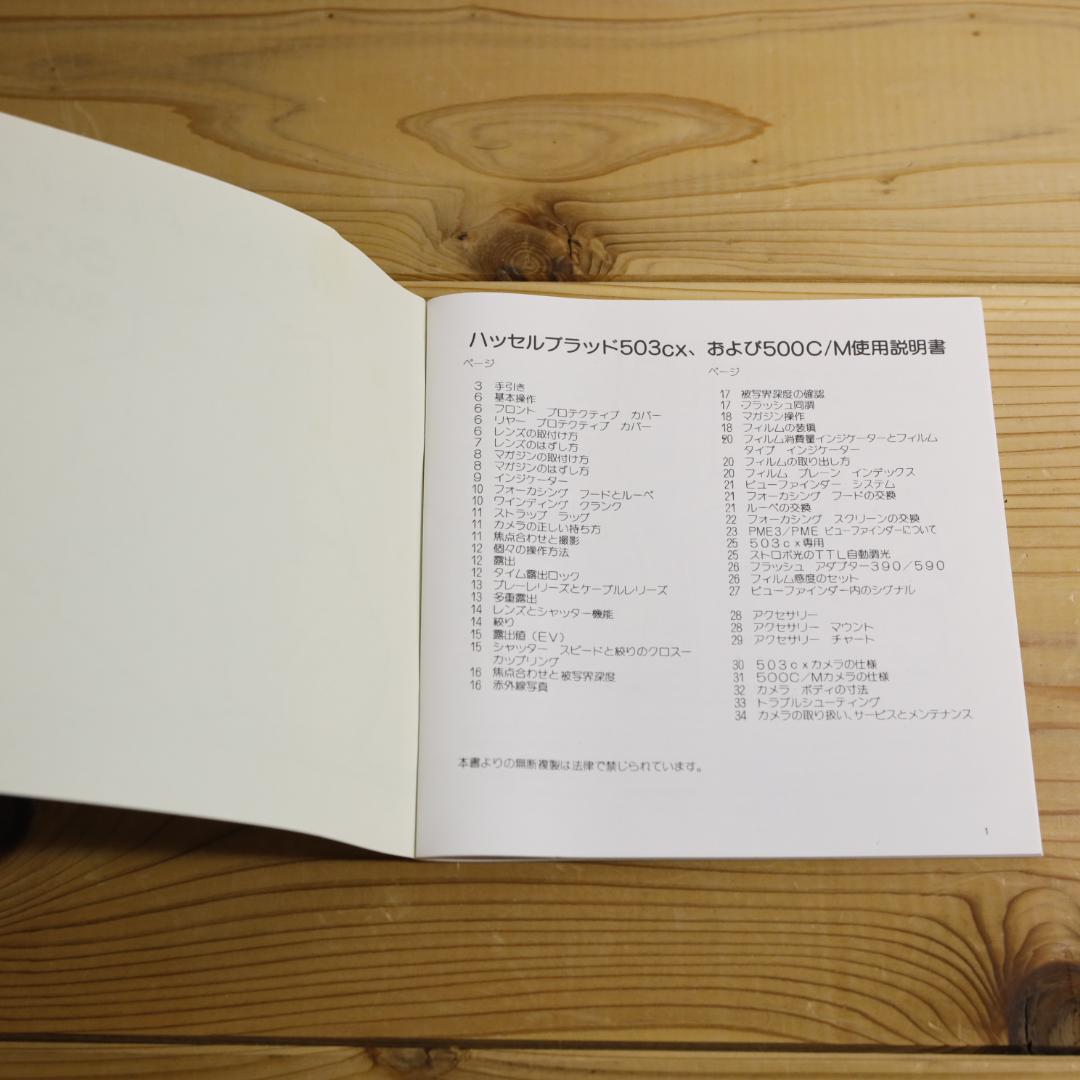 ハッセルブラッド503cx、および500C/M使用説明書
ページ
3 手引き
6 基本操作
6 フロント プロテクティブ カバー
6 リヤー プロテクティブ カバー
6 レンズの取付け方
7 レンズのはずし方
8 マガジンの取付け方
8 マガジンのはずし方
9 インジケーター
10 フォーカシング フードとルーペ
10 ワインディング クランク
11 ストラップ ラッグ
11 カメラの正しい持ち方
11 焦点合わせと撮影
12 個々の操作方法
12 露出
12 タイム露出ロック
13 プレーレリーズとケーブルレリーズ
13 多重露出
14 レンズとシャッター機能
14 絞り
15 露出値(EV)
15 シャッター スピードと絞りのクロスー
カップリング
16 焦点合わせと被写界深度
16 赤外線写真
ページ
17 被写界深度の確認
17 フラッシュ同調
18 マガジン操作
18 フィルムの装填
20 フィルム消費量インジケーターとフィルム
タイプ インジケーター
20 フィルムの取り出し方
20 フィルム プレーン インデックス
21 ビューファインダー システム
21 フォーカシング フードの交換
21 ルーペの交換
22 フォーカシング スクリーンの交換
23 PME3/PME ビューファインダーについて
25 503cx専用
25 ストロボ光のTTL自動調光
26 フラッシュ アダプター390/590
26 フィルム感度のセット
27 ビューファインダー内のシグナル
28 アクセサリー
28 アクセサリー マウント
29 アクセサリー チャート
30 503cxカメラの仕様
31 500C/Mカメラの仕様
32 カメラ ボディの寸法
33 トラブルシューティング
34 カメラの取り扱い、サービスとメンテナンス
本書よりの無断複製は法律で禁じられています。
1